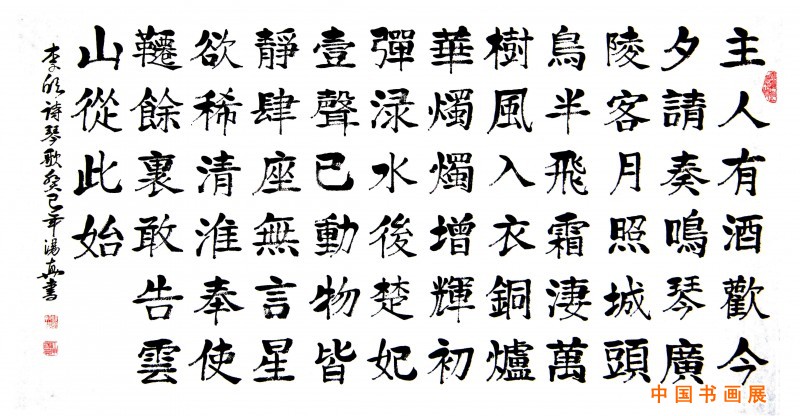 主人有酒歡今
夕請奏鳴琴廣
陵客月照城頭
烏半飛霜淒萬
樹風入衣銅爐
華燭燭增輝初
彈渌水後楚妃
壹聲已動物皆
靜肆座無言星
欲稀清淮奉使
韆餘裏敢告雲
山從此始
李欣诗琴歌癸巳年湯真書
中国书画展